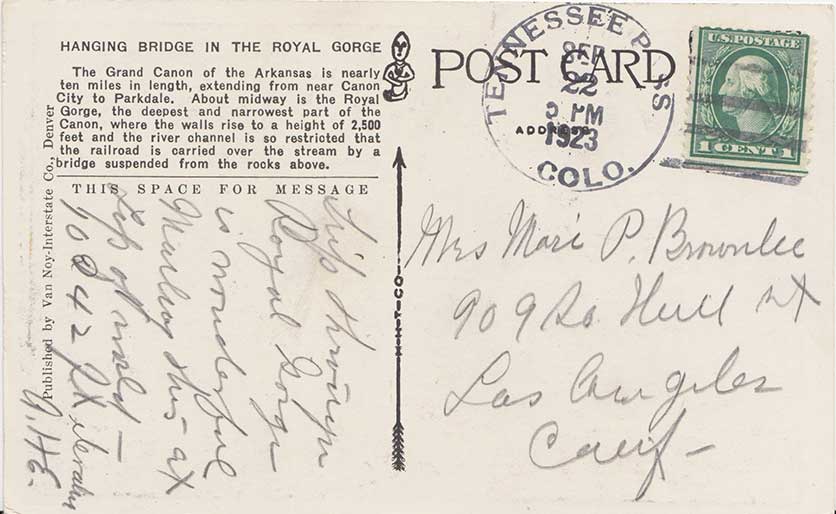 HANGING BRIDGE IN THE ROYAL GORGE
The Grand Canon of the Arkansas is nearly
ten miles in length, extending from near Canon
City to Parkdale. About midway is the Royal
Gorge, the deepest and narrowest part of the
Canon, where the walls rise to a height of 2,500
feet and the river channel is so restricted that
the railroad is carried over the stream by a
bridge suspended from the rocks above.
THIS SPACE FOR MESSAGE
Trip through
Royal Gorge
is wonderful
Mailing this at
top of world —
10242 ft elevation
Published by Van Noy-Interstate Co., Denver
H-H-T-CO.
POST CARD
ADDRESS
TENNESSEE PASS
SEP
22
5 PM
1923
COLO.
U.S. POSTAGE
1 CENT 1
Mrs Marie P. Brownlee
909 So Hill St
Los Angeles
Calif —